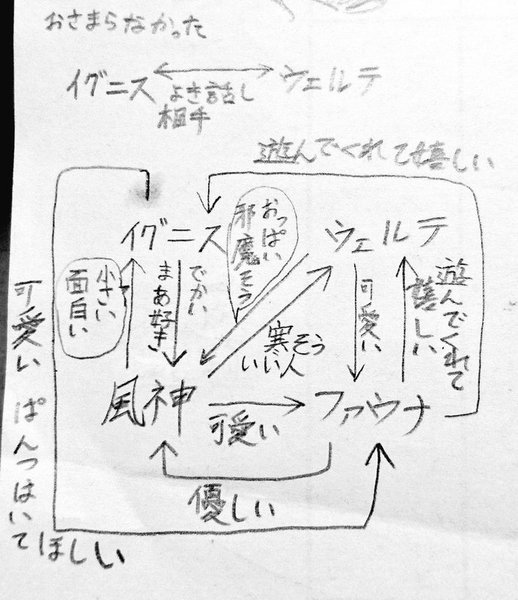 おさまらなかった
イグニス
ウェルテ
よき話し
相手
遊んでくれて嬉しい
イグニス
ウェルテ
おっぱい
邪魔そう
小さい
面白い
でかい
まあ好き
寒そう
いい人
可愛い
遊んでくれて
嬉しい
風神
可愛い
ファウナ
優しい
可愛い ぱんつはいてほしい